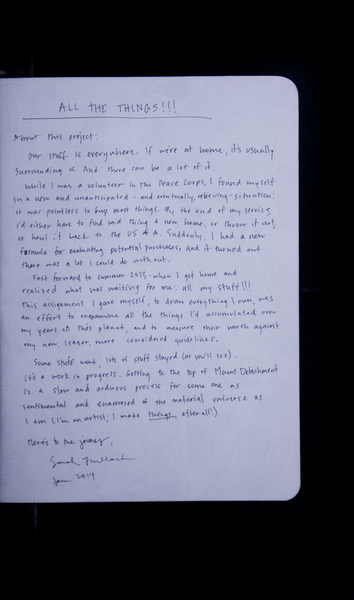 ALL THE THINGS!!!
About this project:
Our stuff is everywhere. If we're at home, it's usually
surrounding us. And there can be a lot of it.
While I was a volunteer in the Peace Corps, I found myself
in a new and unanticipated - and eventually, relieving - situation:
it was pointless to buy most things. By the end of my service
I'd either have to find said thing a new home, or throw it out,
or haul it back to the US of A. Suddenly, I had a new
formula for evaluating potential purchases, and it turned out
there was a lot I could do without.
Fast forward to summer 2013 - when I got home and
realized what was waiting for me: all my stuff!!!
This assignment I gave myself, to draw everything I own, was
an effort to reexamine all the things I'd accumulated over
my years on this planet, and to measure their worth against
my new, leaner, more considered guidelines.
Some stuff went, lots of stuff stayed (as you'll see).
It's a work in progress. Getting to the top of Mount Detachment
is a slow and arduous process for someone as
sentimental and enamored of the material universe as
I am (I'm an artist; I make things, after all!).
Here's to the journey,
Sarah
Jan. 2014